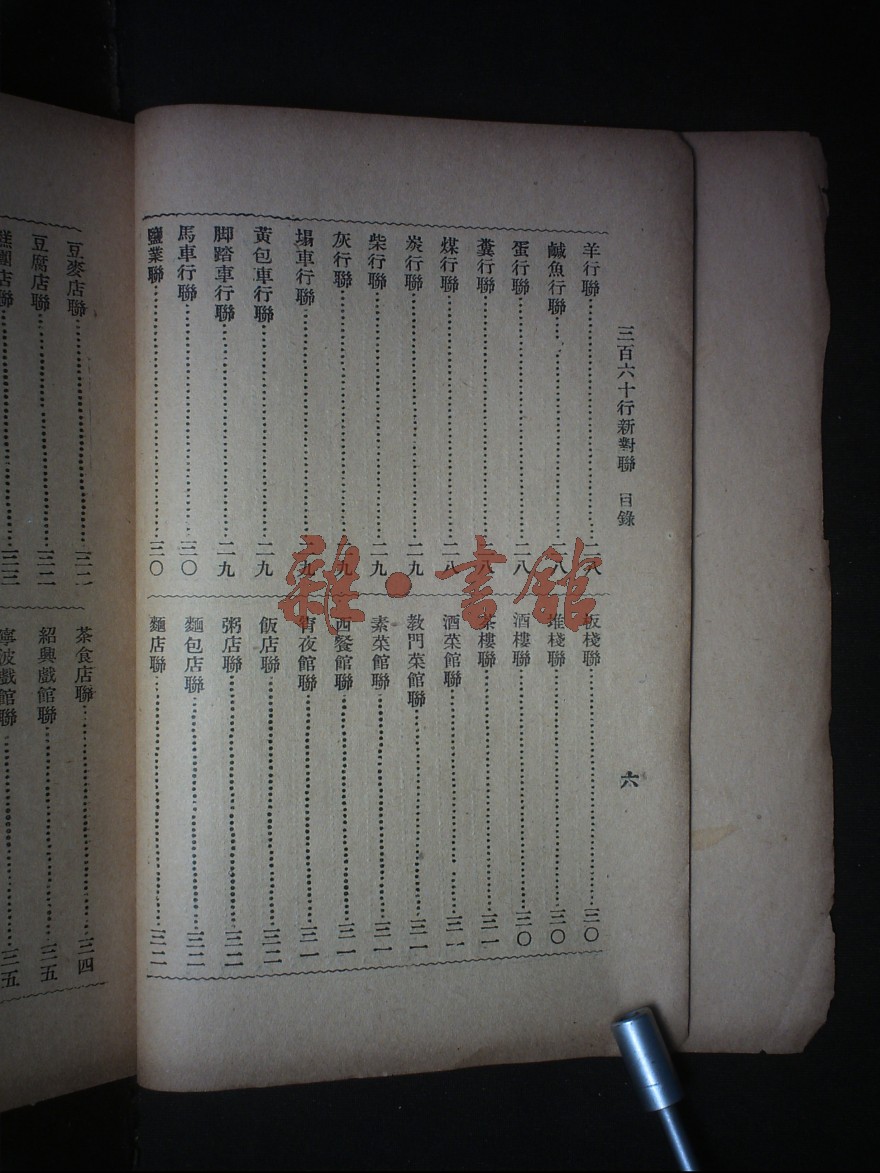 三百六十行新對聯 目錄 六
羊行聯 二八
鹹魚行聯 二八
蛋行聯 二八
糞行聯 二八
煤行聯 二八
炭行聯 二九
柴行聯 二九
灰行聯 二九
塲車行聯 二九
黃包車行聯 二九
脚踏車行聯 二九
馬車行聯 三〇
鹽業聯 三〇
板棧聯 三〇
堆棧聯 三〇
酒樓聯 三〇
茶樓聯 三一
酒菜館聯 三一
教門菜館聯 三一
素菜館聯 三一
西餐館聯 三一
宵夜館聯 三一
飯店聯 三二
粥店聯 三二
麵包店聯 三二
麵店聯 三二
豆麥店聯
豆腐店聯
糕團店聯 三三
茶食店聯 三四
紹興戲館聯 三五
寧波戲館聯 三五
雜·書館